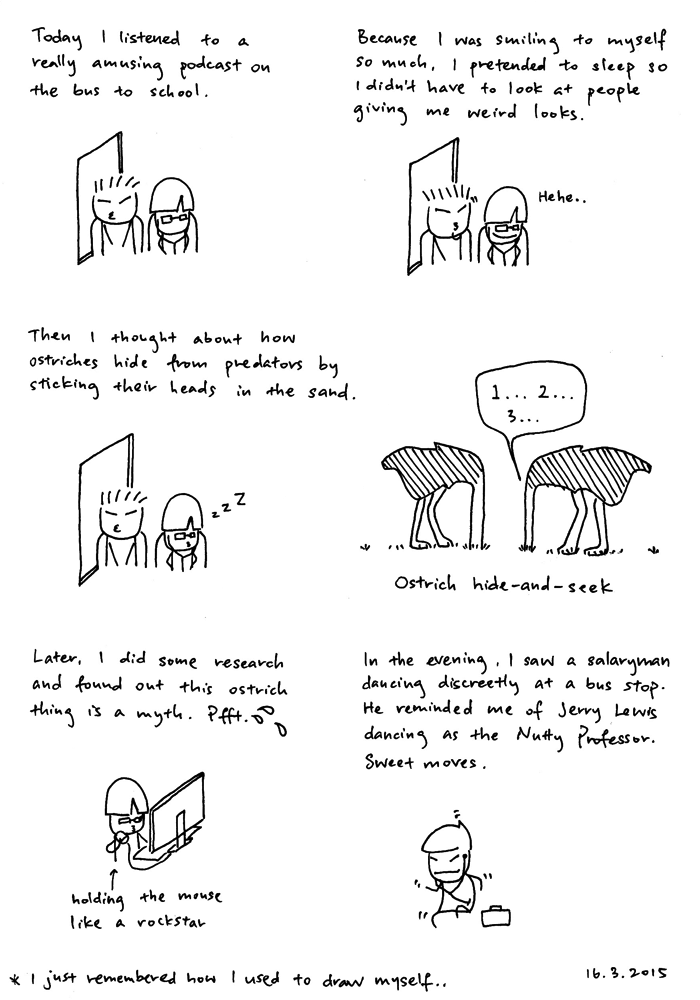 Today I listened to a
really amusing podcast on
the bus to school.
Because I was smiling to myself
so much, I pretended to sleep so
I didn't have to look at people
giving me weird looks.
Hehe..
Then I thought about how
ostriches hide from predators by
sticking their heads in the sand.
zzZ
1... 2...
3...
Ostrich hide-and-seek
Later, I did some research
and found out this ostrich
thing is a myth. Pfft.
holding the mouse
like a rockstar
In the evening, I saw a salaryman
dancing discreetly at a bus stop.
He reminded me of Jerry Lewis
dancing as the Nutty Professor.
Sweet moves.
* I just remembered how I used to draw myself..
16.3.2015